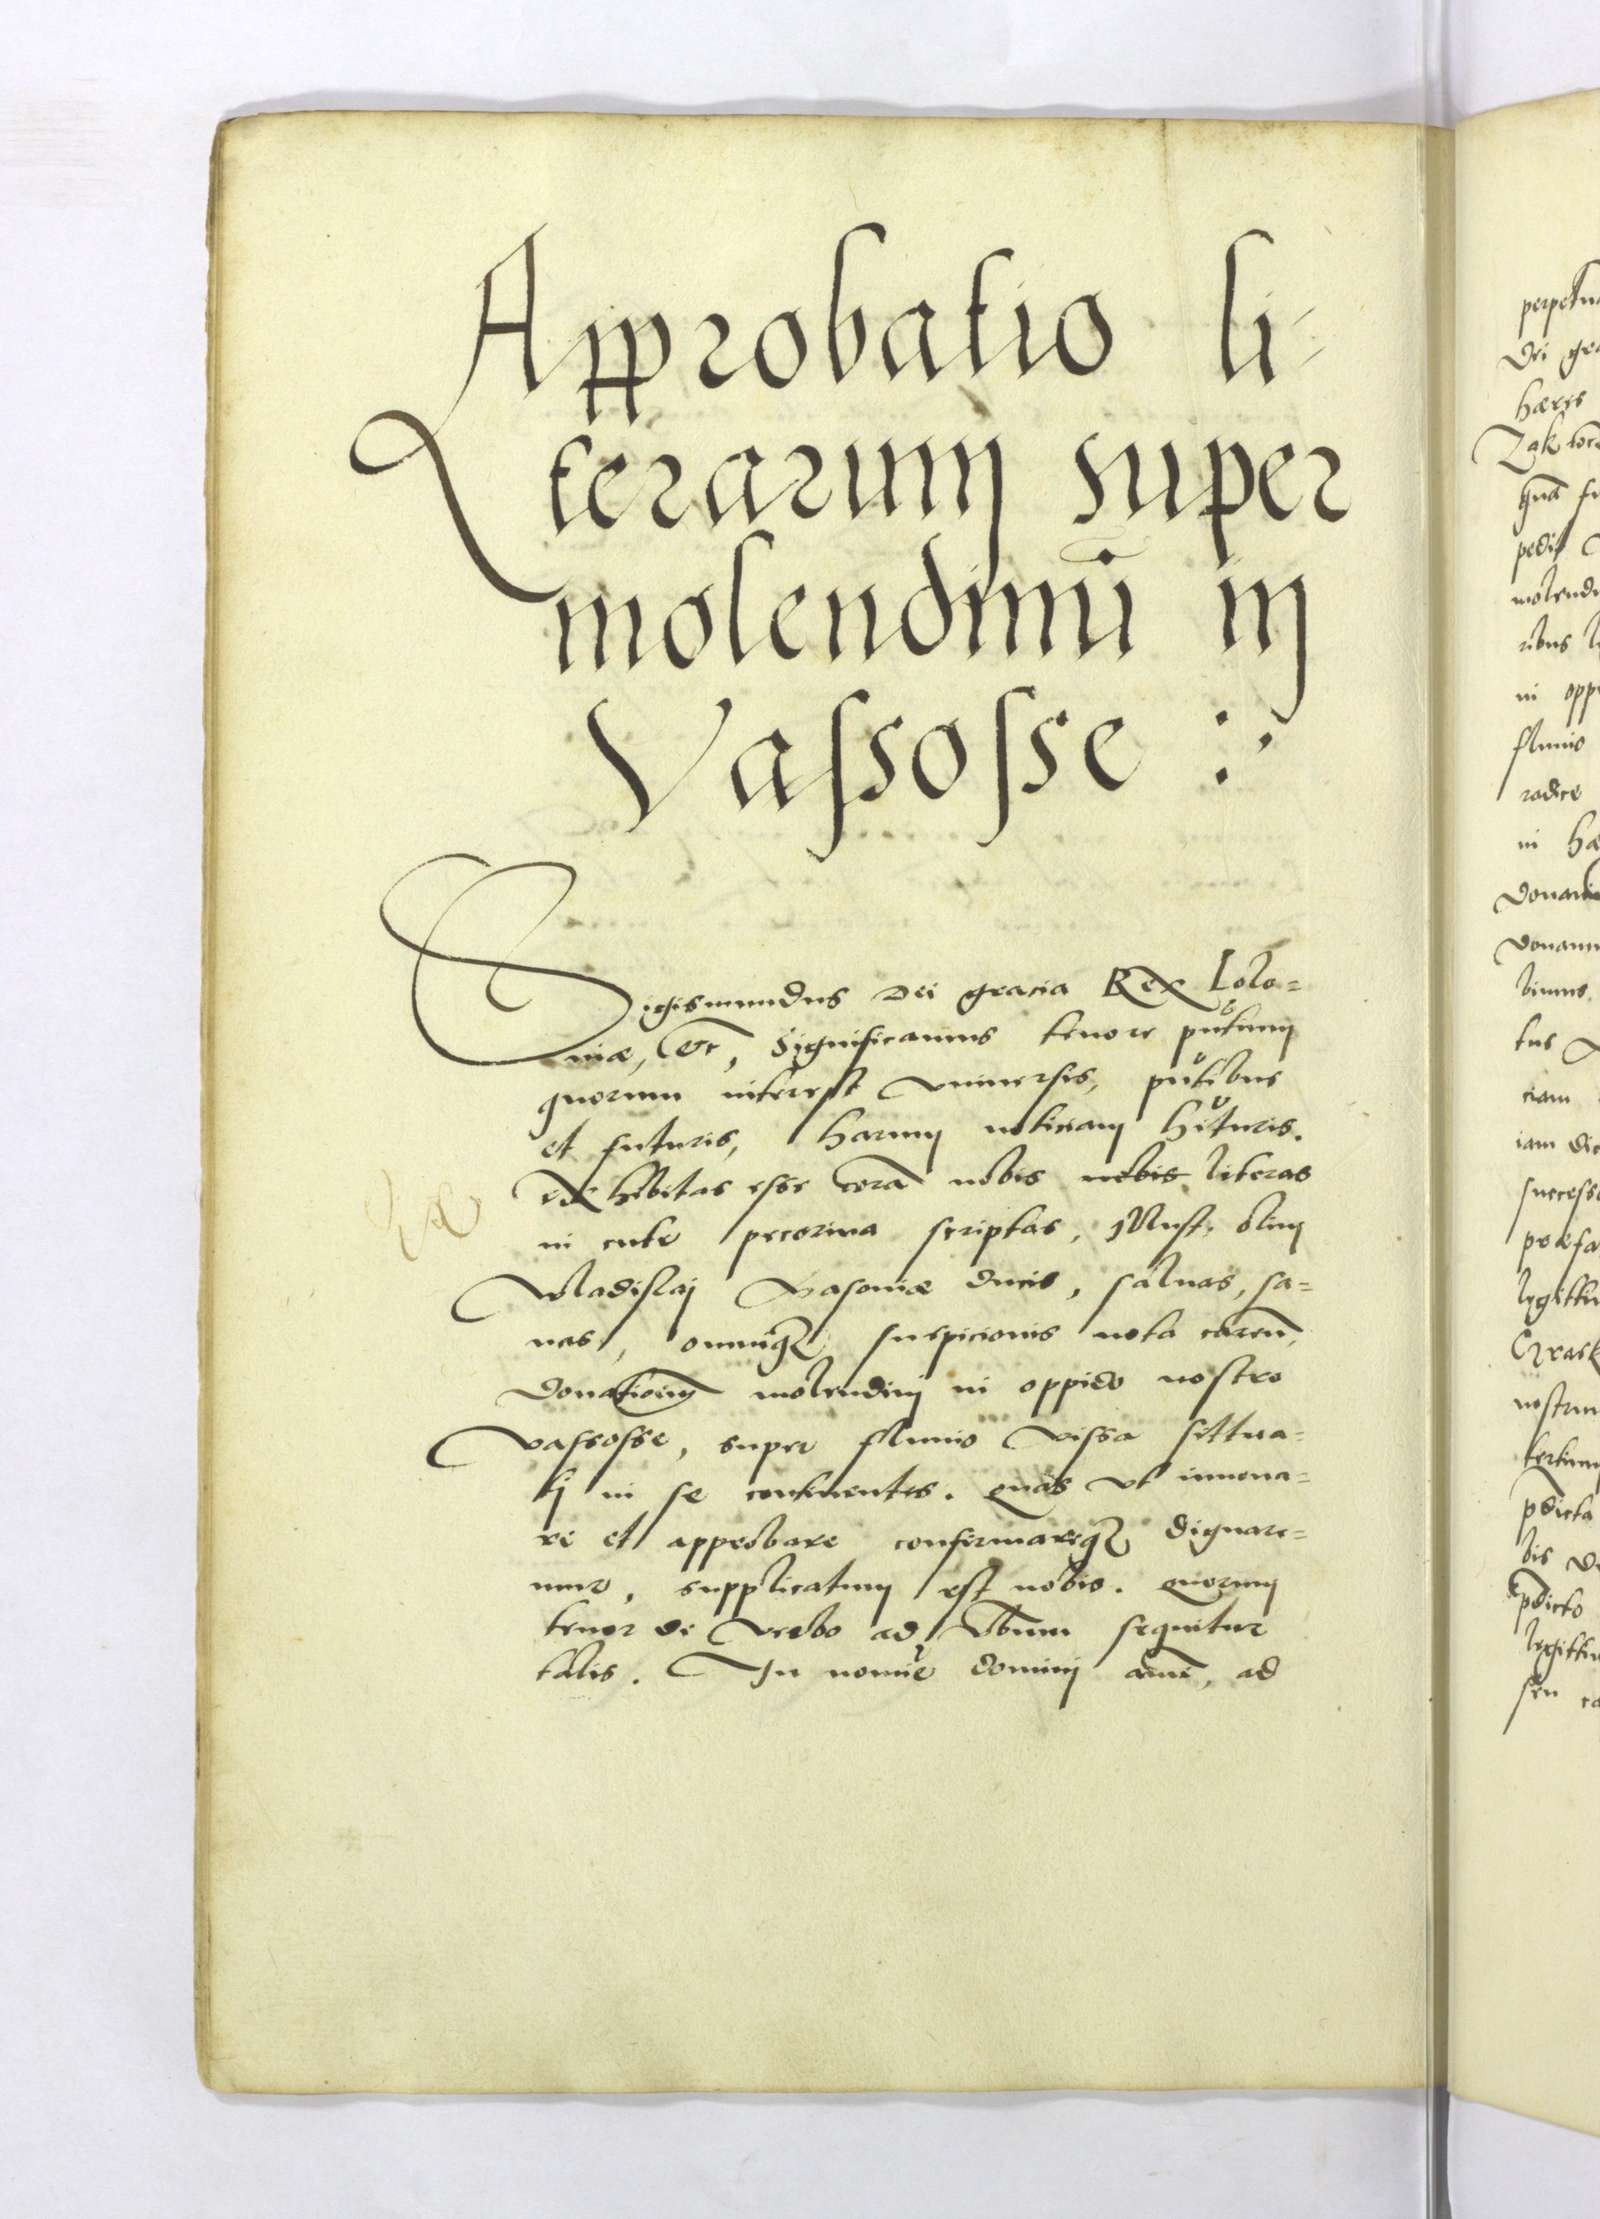 Approbatio li-
terarum super
molendinū in
Vassosse :
Sigismundus Dei gracia Rex Polo=
niæ, etc, Significamus tenore pñtium
quorum interest vniuersis, pñtibus
et futuris, harum noticiam hituris.
Exhibitas esse corā nobis nobis literas
in cute pecorina scriptas, Illust. olim
Wladislaj Masoniæ ducis, saluas, sa=
nas, omniq3 suspicionis nota careñ,
donationem molendinj in oppido nostro
Vassosse, super fluuio Vissa sittua=
tj in se continentes. quas vt innoua=
re et approbare confirmareq3 dignare=
mur, supplicatum est nobis. quorum
tenor de verbo ad vbum sequitur
talis. In nomie dominj amē, ad
perpetua
Dei gra
hæres
pedi
molendi
ribus
in opp
fluuio
radice
in hæ
donatio
donam
tus
ciam
iam dic
success
præfa
legittim
nostrum
pdicta
bis
pdicto
legittim
seu ca